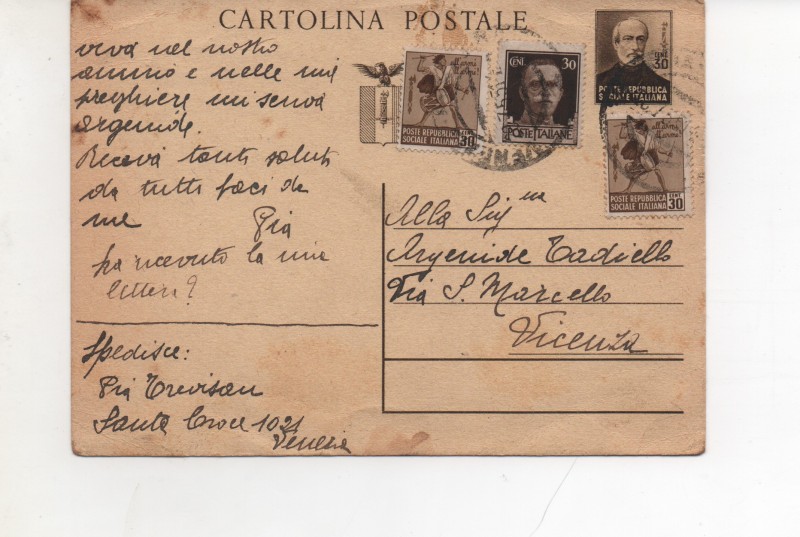 CARTOLINA POSTALE
viva nel nostro
animo e nelle mie
preghiere mi scriva
Argenide.
Riceva tanti saluti
da tutti baci da
me Pia
ha ricevuto la mia
lettera?
Spedisce:
Pia Trevisan
Santa Croce 1021
Venezia
POSTE REPUBBLICA
SOCIALE ITALIANA
CENT
30
CENT. 30
POSTE ITALIANE
CENT
30
POSTE REPUBBLICA
SOCIALE ITALIANA
POSTE REPUBBLICA
SOCIALE ITALIANA
CENT
30
Alla Sig.na
Argenide Tadiello
Via S. Marcello
Vicenza